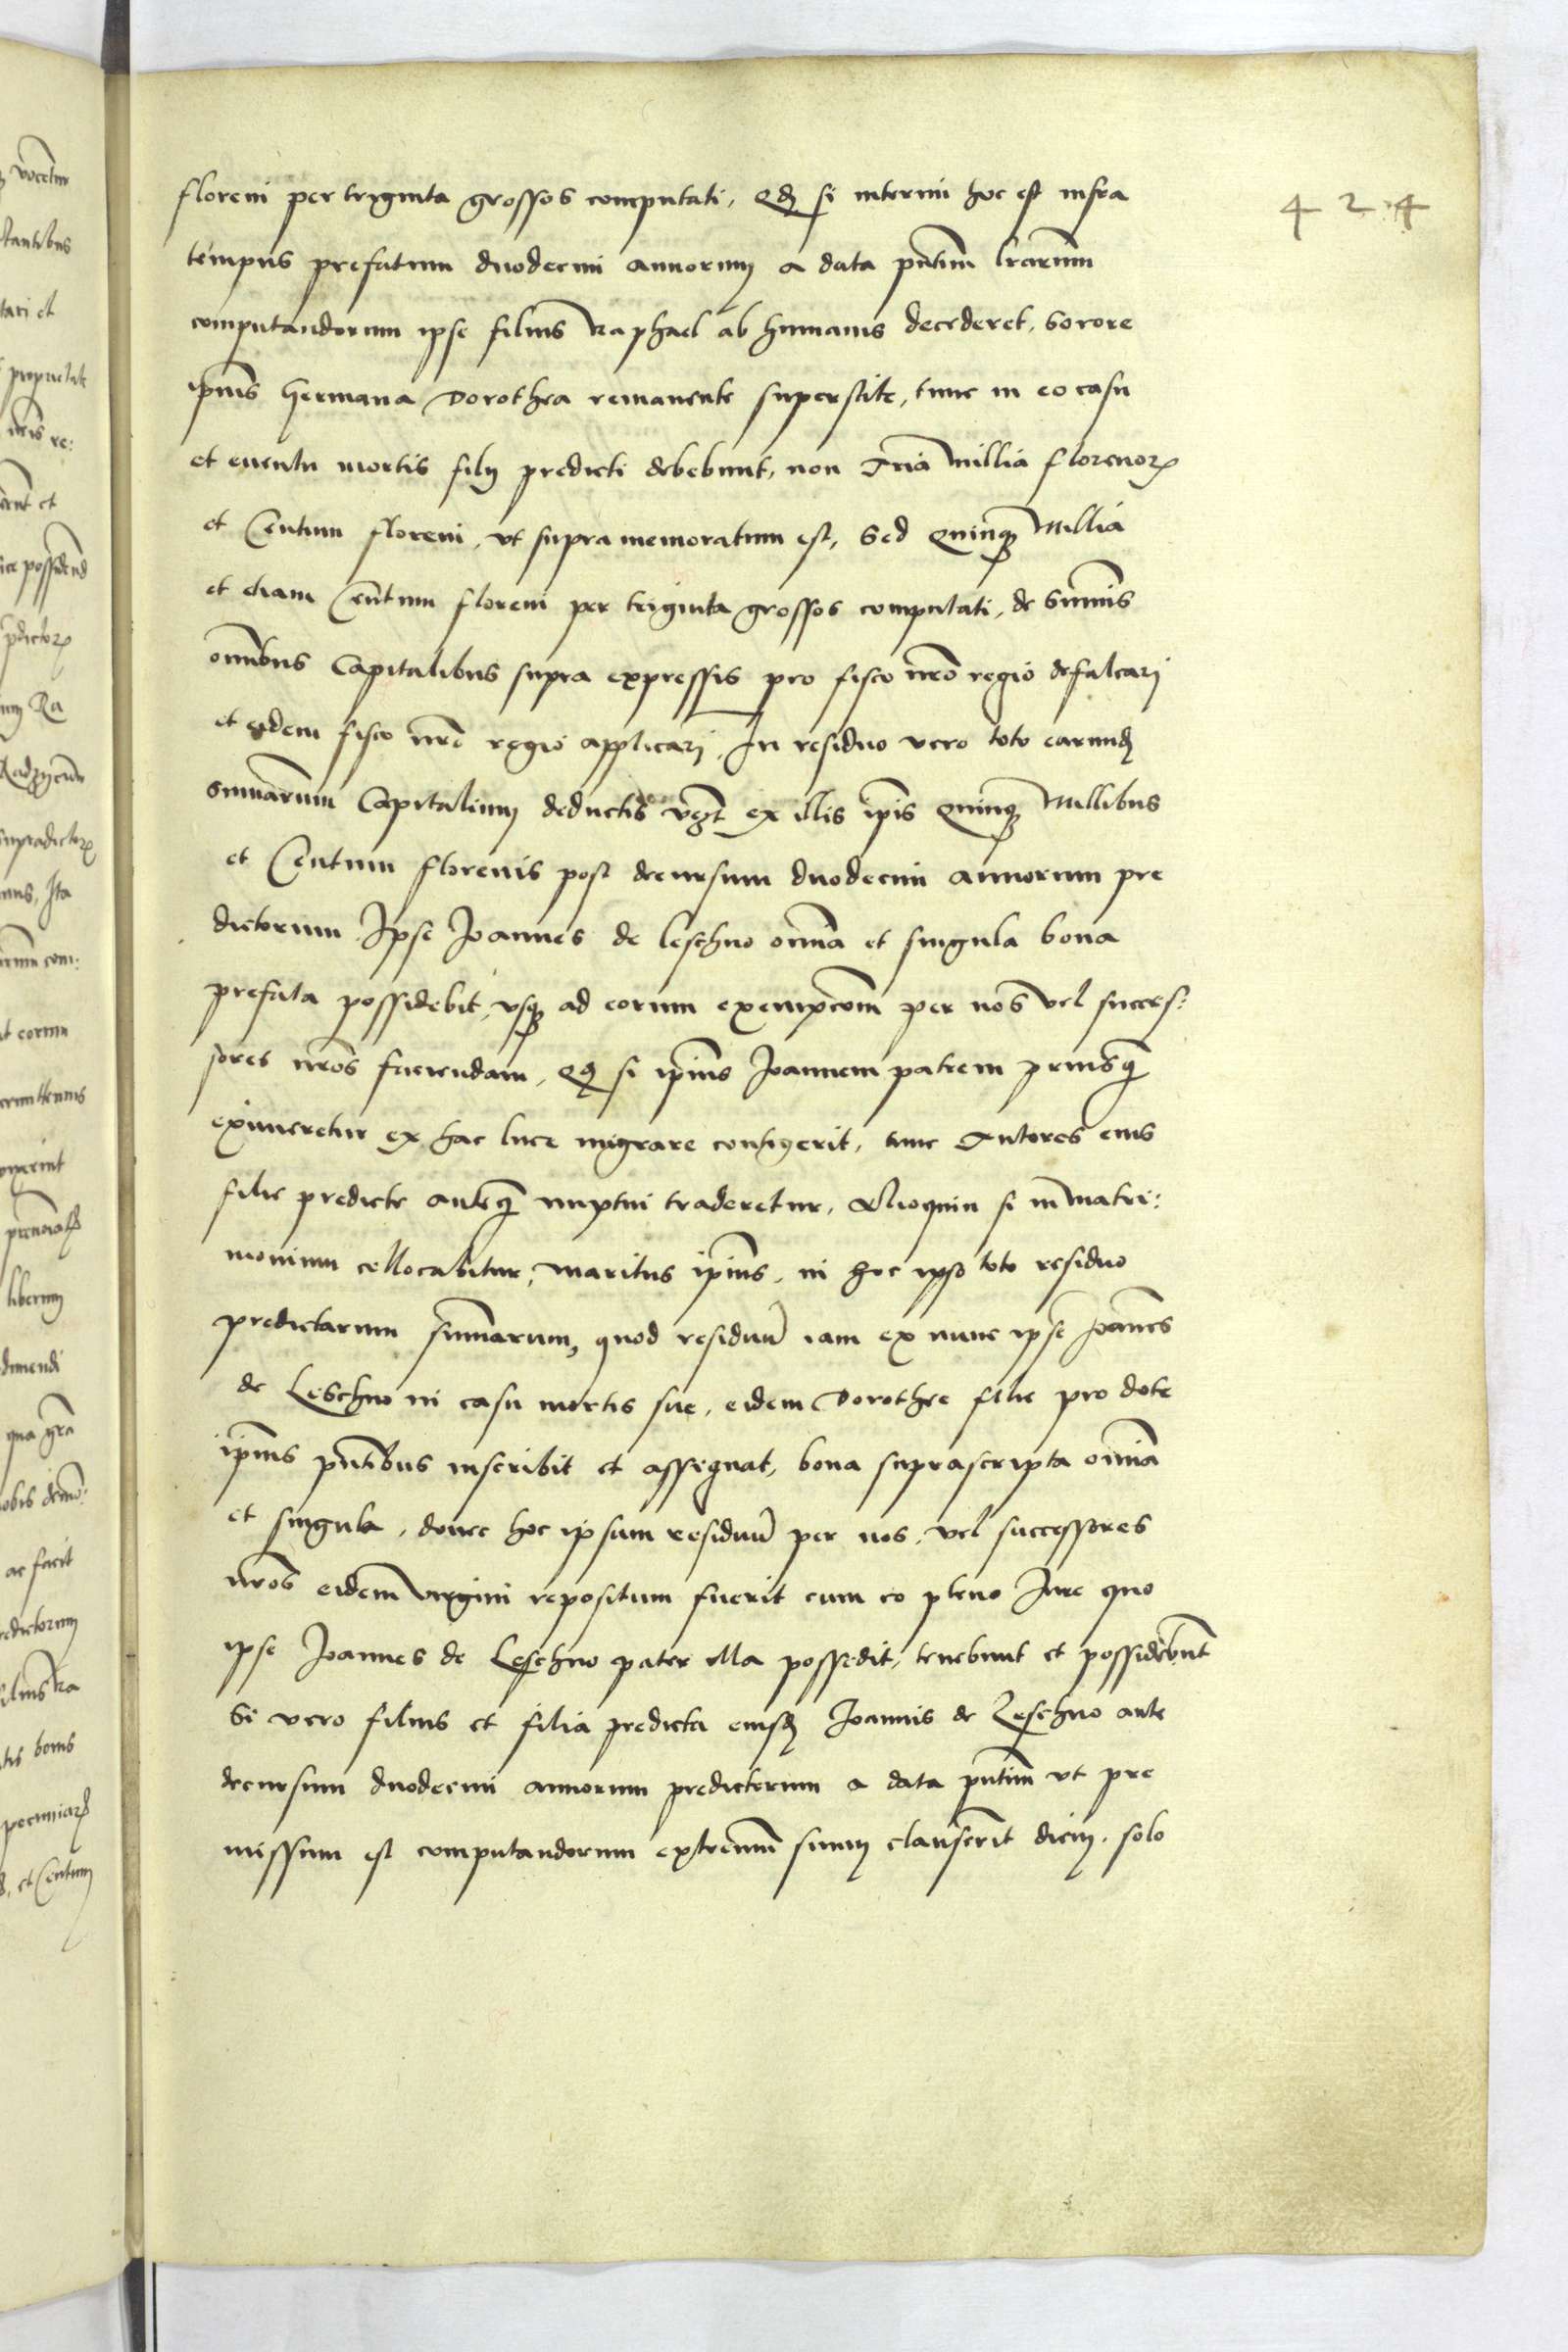 424
floreni per triginta grossos computati, Qd si interim hoc est infra
tempus prefatum duodecim annorum a data pntium lrarum
computandorum ipse filius Raphael ab humanis decederet, Sorore
ipius Germana Dorothea remanente superstite, tunc in eo casu
et euentu mortis filij predicti debebunt, non Tria Millia florenor
et Centum floreni, vt supra memoratum est, Sed Quinq Millia
et etiam Centum floreni per triginta grossos computati, de Summis
omnibus Capitalibus supra expressis pro fisco nro regio defalcari
et eidem fisco nro regio applicari, In residuo vero toto earund
summarum Capitalium deductis vt ex illis ipis Quinq Millibus
et Centum florenis post decursum duodecim annorum pre
dictorum Ipse Joannes de Leschno omnia et singula bona
prefata possidebit, vsq ad eorum exempcom per nos vel succes:
sores nros faciendam, Qd si ipius Joannem patrem priusq
eximeretur ex hac luce migrare contigerit, tunc Tutores eius
filie predicte anteq nuptui traderetur, Alioquin si in matri:
monium collocabitur, maritus ipius, in hoc ipso toto residuo
predictarum summarum, quod residuu iam ex nunc ipse Joannes
de Leschno in casu mortis sue, eidem Dorothee filie pro dote
ipius pntibus inscribit et assignat, bona suprascripta omnia
et singula, donec hoc ipsum residuu per nos, vel successores
nros eidem virgini repositum fuerit cum eo pleno Jure quo
ipse Joannes de Leschno pater illa possedit, tenebunt et possidebunt
Si vero filius et filia predicta eiusd Joannis de Leschno ante
decursum duodecim annorum predictorum a data pntium vt pre
missum est computandorum extremum suum clauserit diem, solo